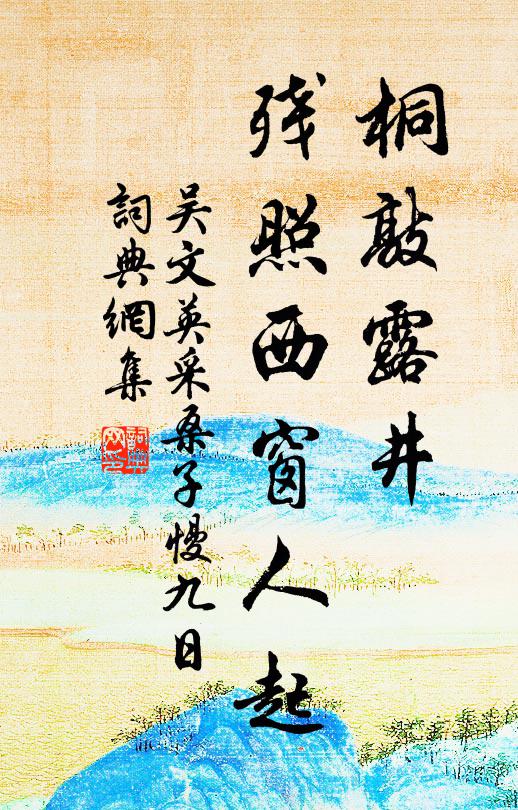 桐敲露井
残照西窗人起
吴文英采桑子慢九日
詞典網集